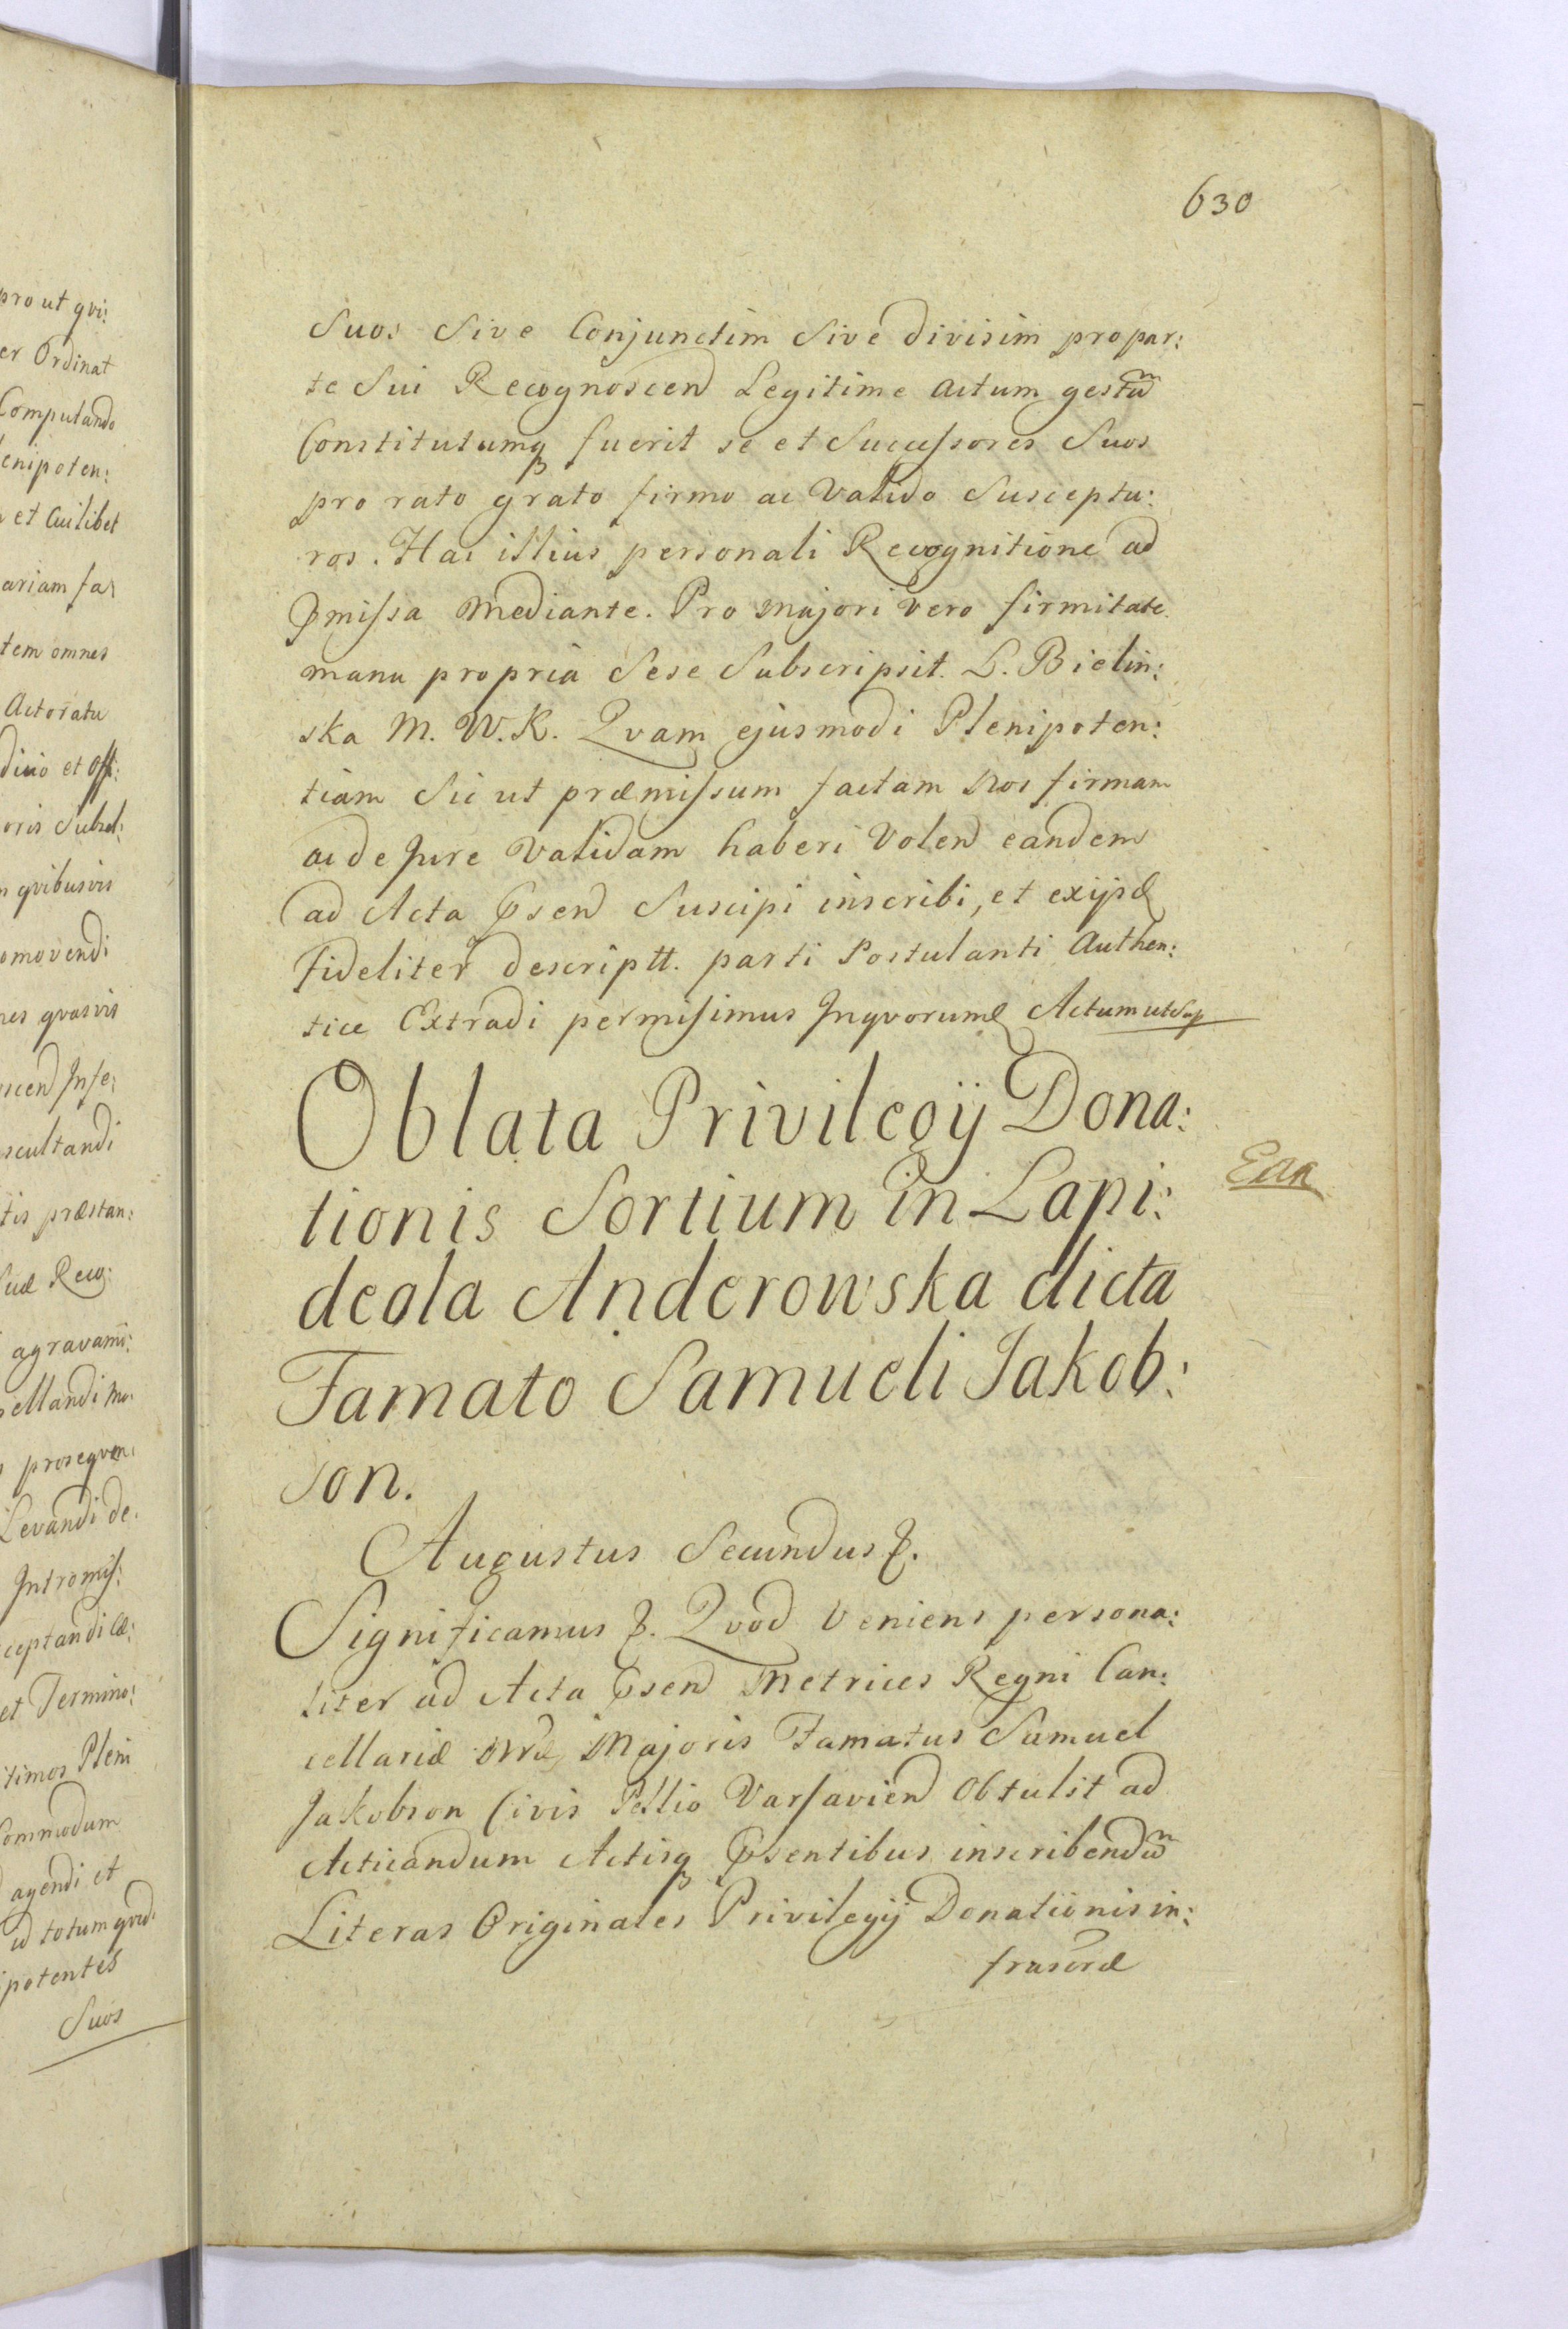 630
Suos Sive Conjunctim Sive divisim pro par:
te Sui Recognoscend Legitime Actum gestũ
Constitutumq fuerit se et Successores Suos
pro rato grato firmo ac Valido Susceptu:
ros. Hac illius personali Recognitione ad
pmissa mediante. Pro majori vero firmitate
manu propria Sese Subscripsit. L. Bielin:
ska M. W. K. Qvam ejusmodi Plenipoten:
tiam Sic ut præmissum factam Nos firmam
ac de Jure Validam haberi Volend eandem
ad Acta psend Suscipi inscribi, et ex ijsd
Fideliter descriptt. parti Postulanti Authen:
tice Extradi permisimus Inqvorum Actum ut Sup
Oblata Privilegij Dona:
tionis Sortium in Lapi:
deola Anderowska dicta
Famato Samueli Jakob:
son.
Augustus Secundus
Significamus Qvod Veniens persona:
liter ad Acta psend Metrices Regni Can:
cellariæ Majoris Famatus Samuel
Jakobson Civis Pellio Varsavien Obtulit ad
Acticandum Actisq psentibus inscribendũ
Literas Originales Privilegij Donationis in:
frascræ
pro ut qvi:
er Ordinat
Computando
lenipoten:
et Cuilibet
ariam fa
tem omnes
Actoratu
dicio et Off:
oris Subsel:
qvibusvis
omovendi
nes qvasvis
oscend Inse:
scultandi
tis præstan:
Suæ Reco:
agravami:
ellandi mo:
proseqven:
Levandi de:
Intromis:
ceptandi
et Termino:
timos Pleni
Commodum
agendi et
id totum qvid:
ipotentes
Suos